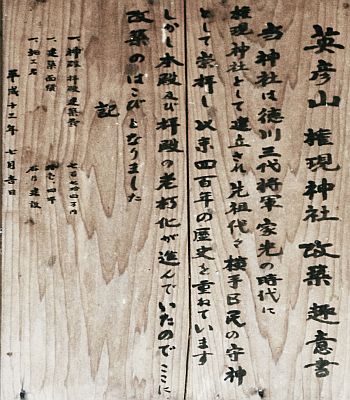 英彦山 権現神社 改築 趣意書
当神社は徳川三代将軍 家光の時代に
権現神社として建立され 先祖代々 横手区民の守神
として崇拝し 以来四百年の歴史を重ねています
しかし本殿及び拝殿の老朽化が進んでいたのでここに
改築のはこびとなりました
記
一、神殿 拝殿 建築費
一、建築 面積
一、施工者
平成十二年 七月吉日